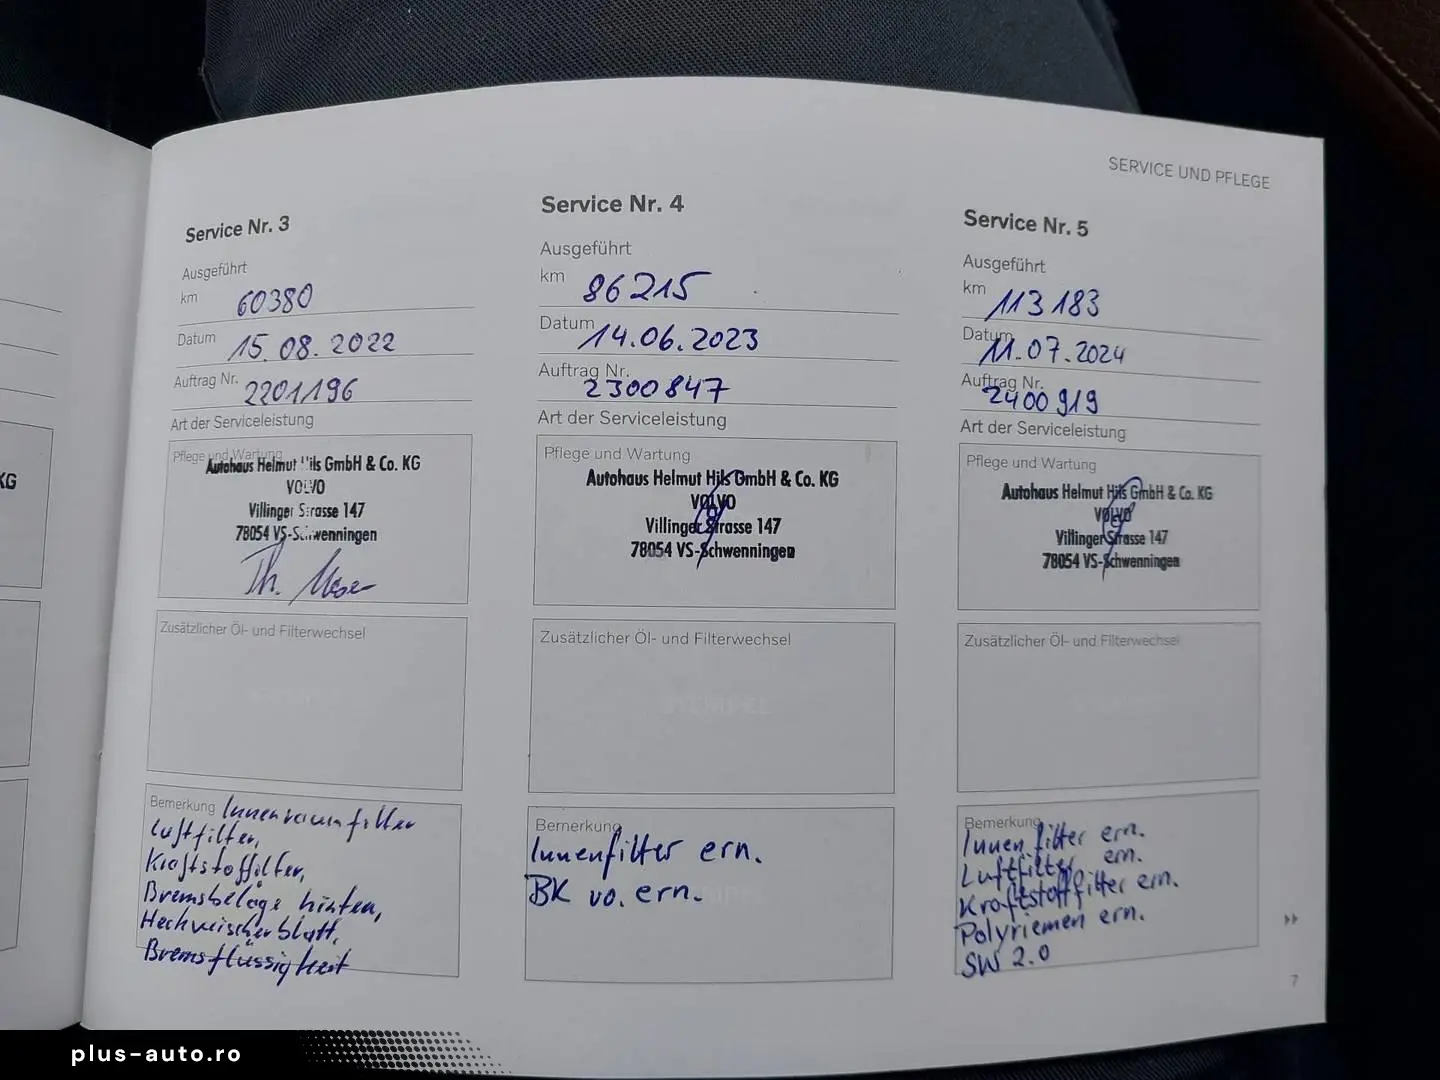 SERVICE UND PFLEGE
Service Nr. 3
Ausgeführt
km 60380
Datum 15.08.2022
Auftrag Nr. 2201196
Art der Serviceleistung
Pflege und Wartung
Autohaus Helmut Hils GmbH & Co. KG
VOLVO
Villinger Strasse 147
78054 VS-Schwenningen
Zusätzlicher Öl- und Filterwechsel
Bemerkung Innenraumfilter
Luftfilter,
Kraftstoffilter,
Bremsbeläge hinten,
Heckwischerblatt,
Bremsflüssigkeit
Service Nr. 4
Ausgeführt
km 86215
Datum 14.06.2023
Auftrag Nr. 2300847
Art der Serviceleistung
Pflege und Wartung
Autohaus Helmut Hils GmbH & Co. KG
VOLVO
Villinger Strasse 147
78054 VS-Schwenningen
Zusätzlicher Öl- und Filterwechsel
STEMPEL
Bemerkung
Innenfilter ern.
BK vo. ern.
Service Nr. 5
Ausgeführt
km 113183
Datum 11.07.2024
Auftrag Nr. 2400919
Art der Serviceleistung
Pflege und Wartung
Autohaus Helmut Hils GmbH & Co. KG
VOLVO
Villinger Strasse 147
78054 VS-Schwenningen
Zusätzlicher Öl- und Filterwechsel
Bemerkung
Innenfilter ern.
Luftfilter ern.
Kraftstofffilter ern.
Polyriemen ern.
SW 2.0
7
KG
plus-auto.ro